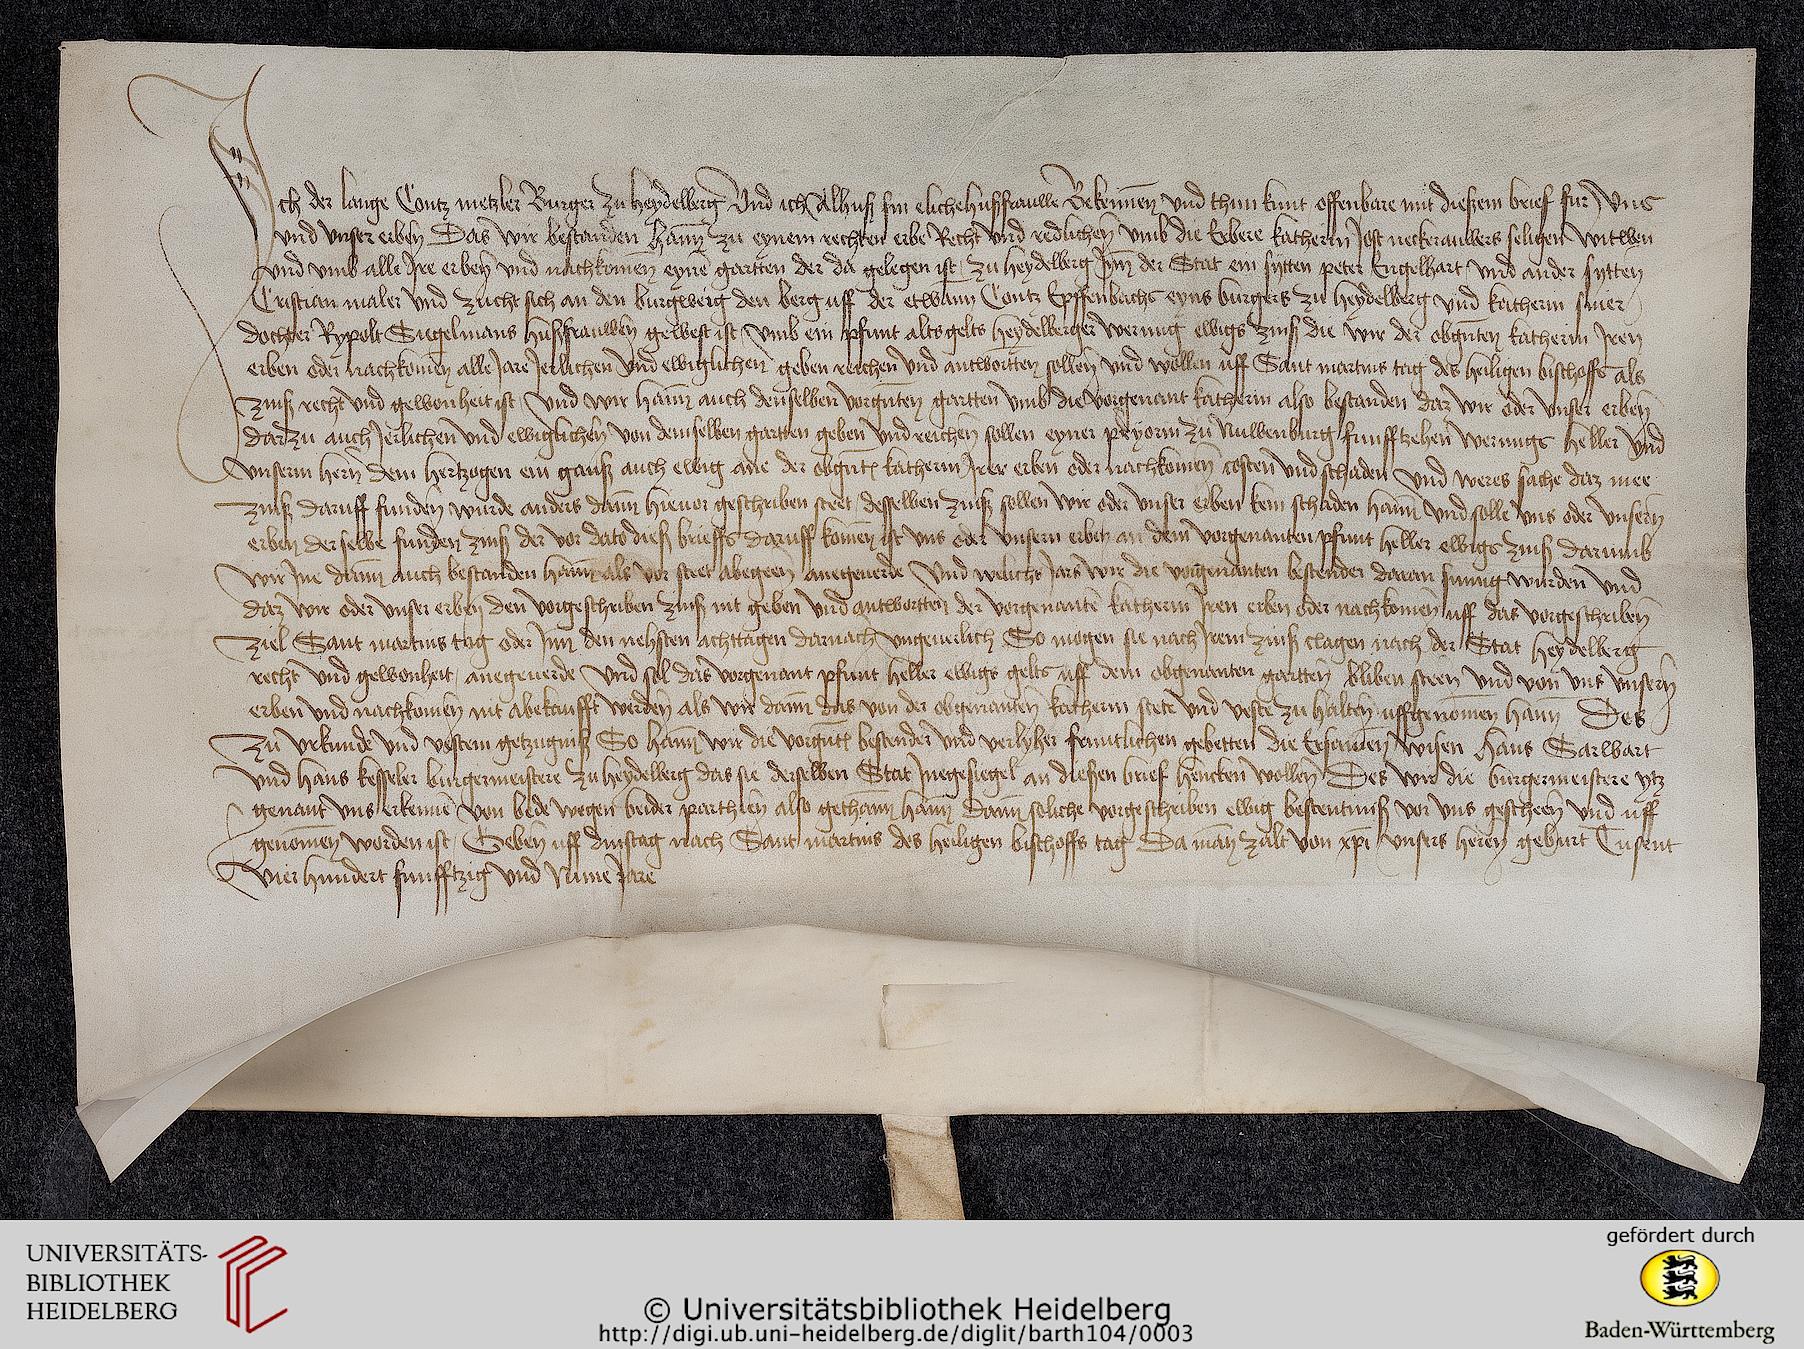 Ich der lange Contz metzler Burger zu Heydelberg Vnd ich Alhuß sin elichehußfrauwe Bekennen vnd thun kunt offenbare mit dießem brief fur Vns
vnd vnser erben Das wir bestanden hann zu eynem rechten erbe Recht vnd redlichen vmb die Erbere katherin Jost neckerauwers seligen witwen
vnd vmb alle Ire erben vnd nachkomen eyne gartten der da gelegen ist zu heydelberg Inn der Stat ein sytten peter Engelhart vnd ander sytten
Cristian maler vnd zucht sich an den burgweig den berg uff der etwann Contz Epffenbachs eyns burgers zu heydelberg vnd katherin siner
dochter Rypolt Siegelmans hußfrauwen gewest ist vmb ein pfunt alts gelts heydelberger werung ewigs zinß die wir der obgnten katherin Iren
erben oder nachkomen alle Jare Jerlichen vnd ewiglichen geben reichen vnd antwortten sollen vnd wollen uff Sant martins tag des heiligen bischoffs als
zinß recht vnd gewonheit ist vnd wir hann auch denselben vorgnten gartten vmb die vorgenant katherin also bestanden daz wir oder vnser erben
darzu auch Jerlichen vnd ewiglichen von demselben gartten geben vnd reichen sollen eyner pryorin zu Nuwenburg funfftzehen werungs heller vnd
vnserm hern dem hertzogen ein ganß auch ewig ane der obgnt katherin Irer erben oder nachkomen costen vnd schaden vnd weres sache daz mee
zinß daruff funden wurde anders dann hieuor geschriben steet desselben zinß sollen wir oder vnser erben kein schaden hann vnd solle vns oder vnsern
erben derselbe funden zinß der vor dato dieß brieffs daruff komen ist vns oder vnsern erben an dem vorgenanten pfunt heller ewigs zinß darumb
wir Ine dann auch bestanden hann als vor steet abegeen anegeuerde Vnd welichs Jars wir die vorgenanten bestender daran sumig wurden vnd
daz wir oder vnser erben den vorgeschriben zinß nit geben vnd antwortten der vorgenante katherin Iren erben oder nachkomen uff das vorgeschriben
ziel Sant martins tag oder Inn den nehsten achttagen darnach vngeuerlich So mogen sie nach Irem zinß clagen nach der Stat Heydelberg
recht vnd gewonheit anegeuerde vnd sol das vorgenant pfunt heller ewigs gelts uff dem obgenanten gartten bliben steen vnd von vns vnsern
erben vnd nachkomen nit abekaufft werden als wir dann das von der obgenanten katherin stete vnd veste zu halten uffgenomen hann Des
zu vrkunde vnd vestem getzugniß So hann wir die vorgnt bestender vnd verlyher fruntlichen gebetten die Ersamen wisen Hans Sarwart
vnd Hans kesseler burgermeistere zu heydelberg das sie derselben Stat Ingesiegel an dießen brief hencken wollen Des wir die burgermeistere ytz
genant vns erkenne von bede wegen beider parthien also gethann hann dann soliche vorgeschriben ewig bestentniß vor vns gescheen vnd uff
genomen worden ist Geben uff dinstag nach Sant martins des heiligen bischoffs tag Da man zalt von xpi vnsers heren geburt Tusent
Vierhundert funfftzig vnd Nune Jare
UNIVERSITÄTS-
BIBLIOTHEK
HEIDELBERG
© Universitätsbibliothek Heidelberg
http://digi.ub.uni-heidelberg.de/diglit/barth104/0003
gefördert durch
Baden-Württemberg